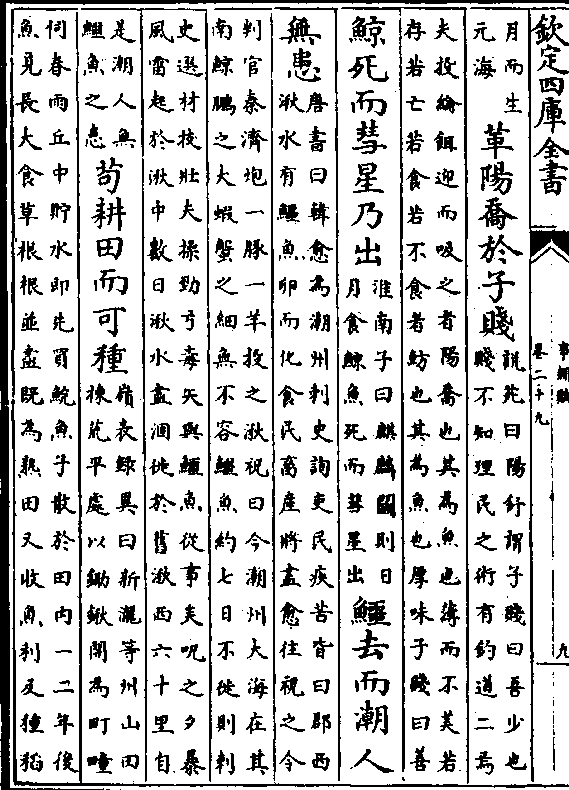 欽定四庫全書
事類賦
卷二十九
九
月而生
元海
革陽喬於子賤
說苑曰陽紓謂子賤曰吾少也
賤不知理民之術有釣道二焉
夫投綸餌迎而吸之者陽喬也其為魚也薄而不美若
存若亡若食若不食者魴也其為魚也厚味子賤曰善
鯨死而彗星乃出
淮南子曰麒麟鬬則日
月食鯨魚死而彗星出
鱷去而潮人
無患
唐書曰韓愈為潮州刺史詢吏民疾苦皆曰郡西
湫水有鱷魚卵而化食民畜産將盡愈往視之令
判官秦濟炮一豚一羊投之湫祝曰今潮州大海在其
南鯨鵬之大蝦蟹之細無不容鱷魚約七日不徙則刺
史選材技壯夫操勁弓毒矢與鱷魚從事矣呪之夕暴
風雷起於湫中數日湫水盡涸徙於舊湫西六十里自
是潮人無
鱷魚之患
苟耕田而可種
嶺表錄異曰新瀧等州山田
揀荒平處以鋤鍬開為町疃
伺春雨丘中貯水即先買鯇魚子散於田内一二年後
魚兒長大食草根根並盡既為熟田又收魚利及種稻